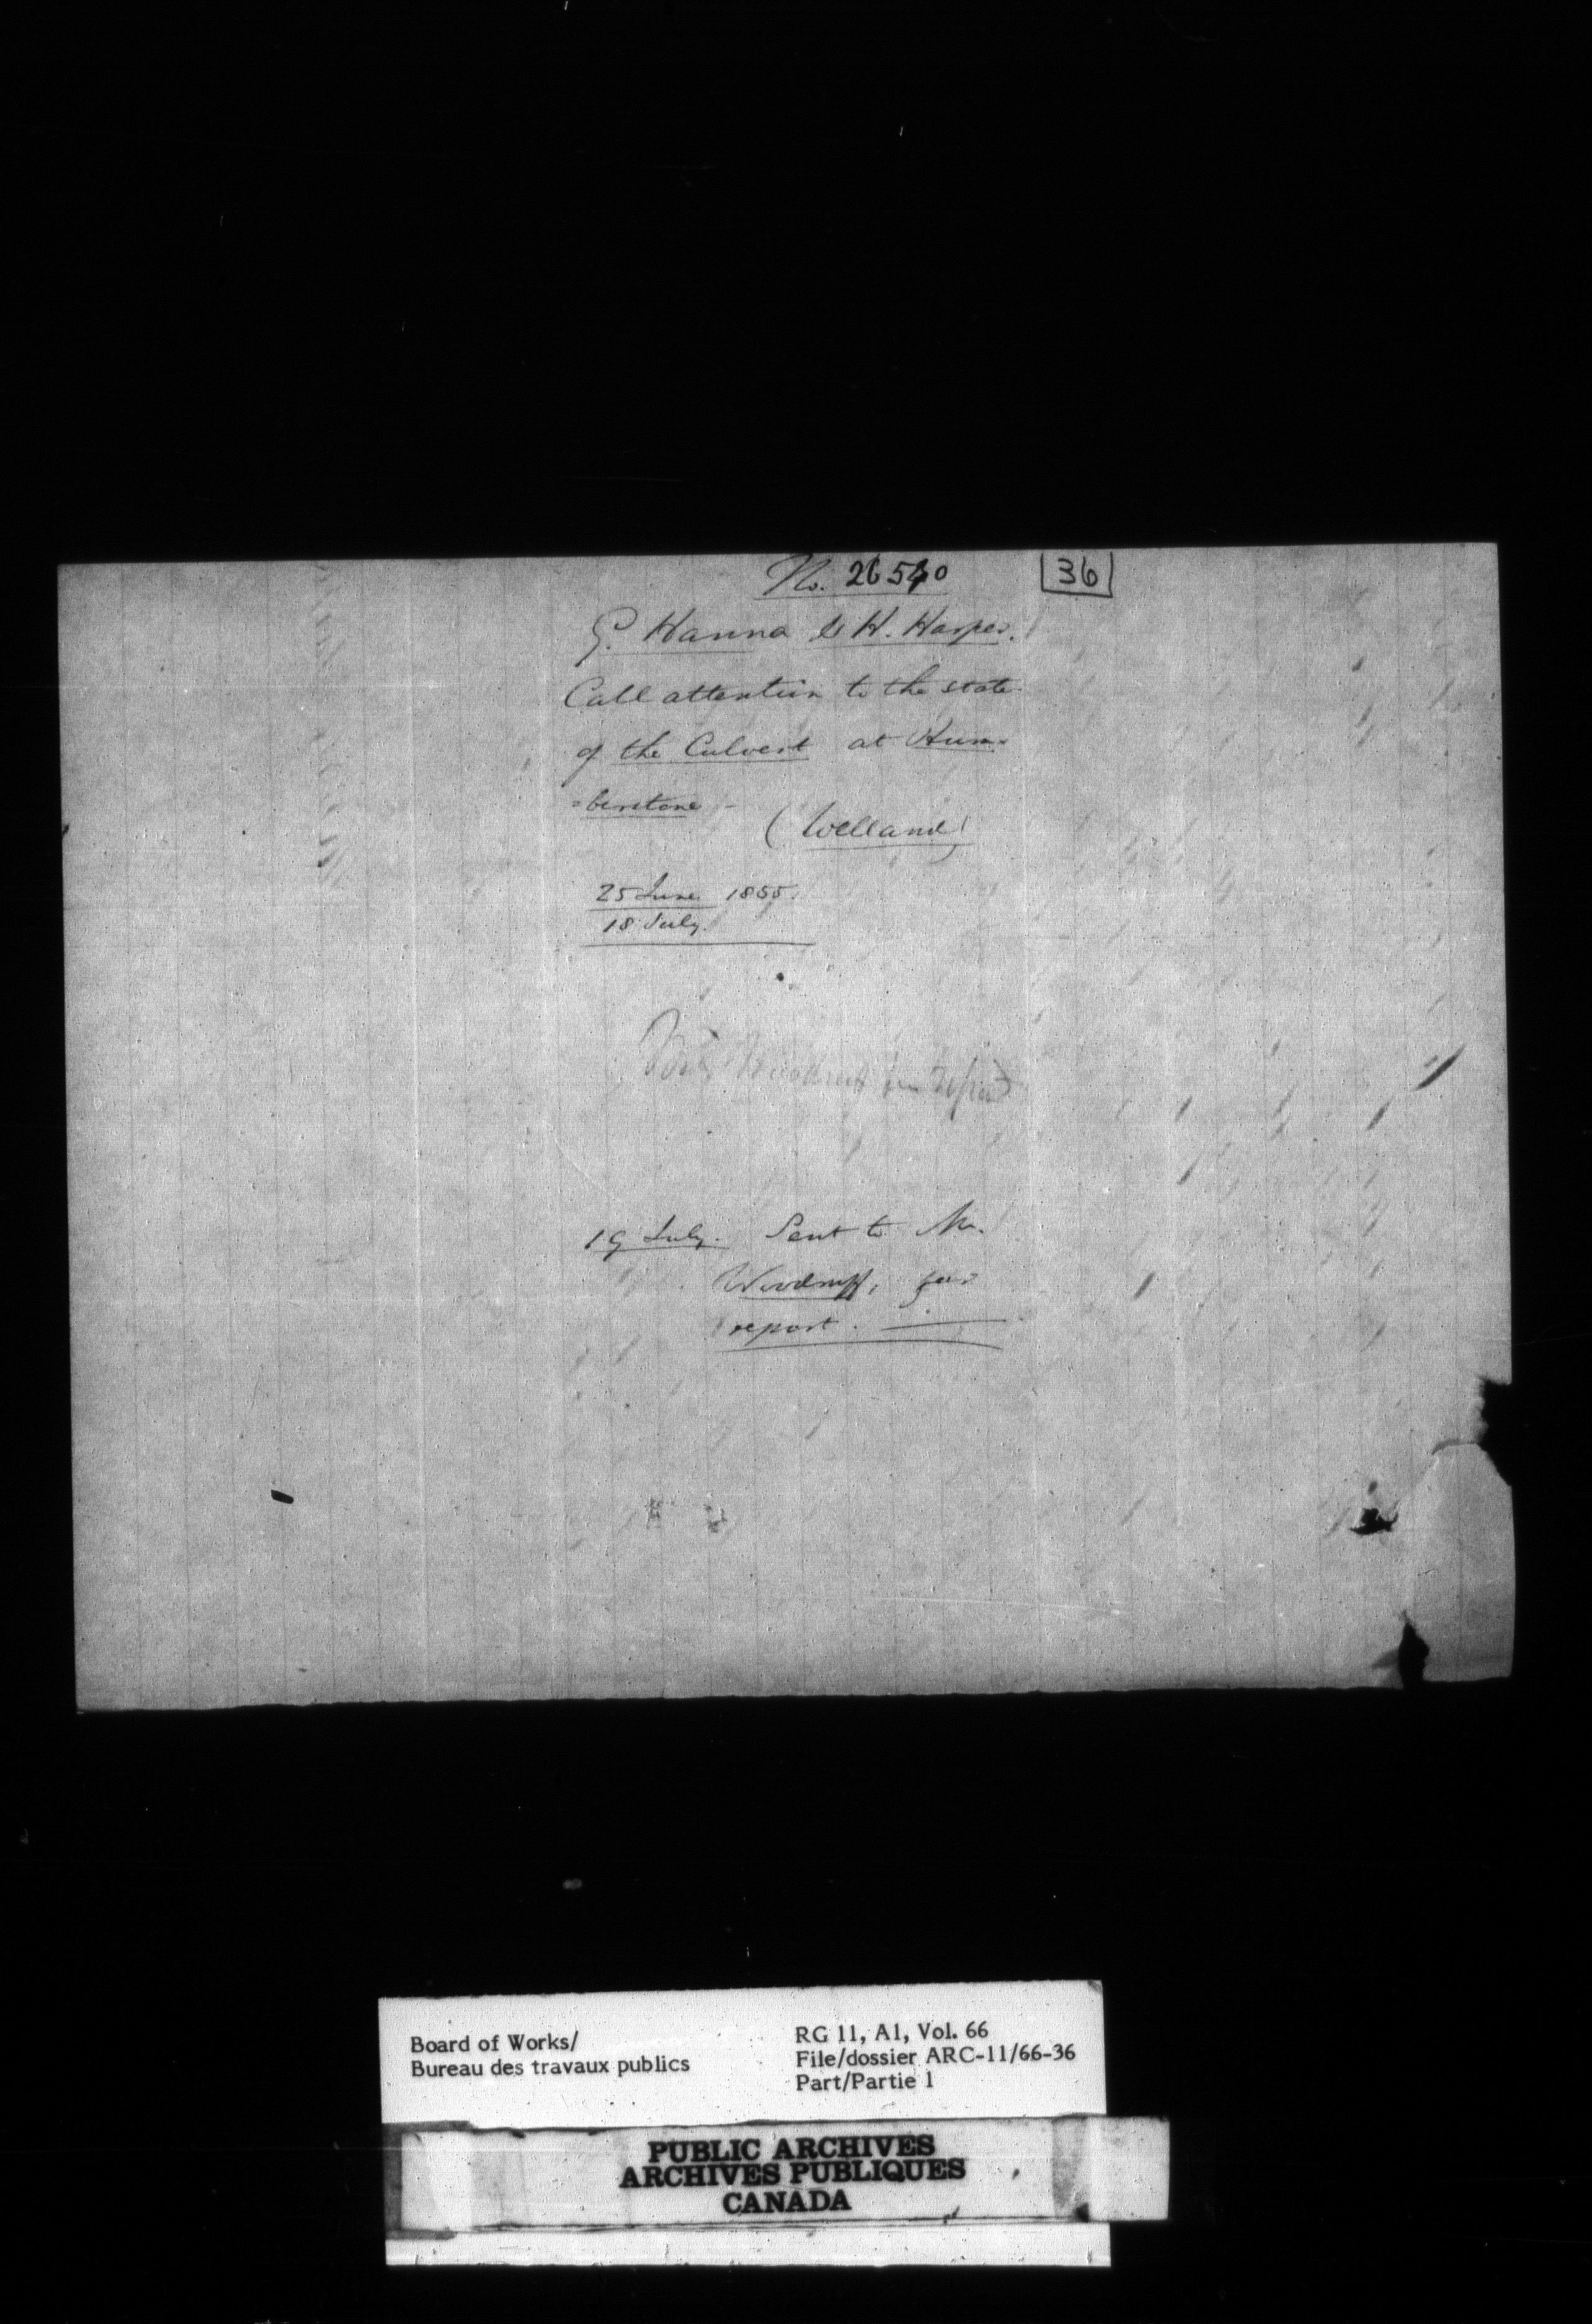 No. 26540
36
G. Hanna & H. Harper.
Call attention to the state
of the Culvert at Hum=
=berstone -
(Welland)
25 June 1855.
18 July.
Mr. Woodruff for report
19 July. Sent to Mr.
Woodruff, for
report.
Board of Works/
Bureau des travaux publics
RG 11, A1, Vol. 66
File/dossier ARC-11/66-36
Part/Partie 1
PUBLIC ARCHIVES
ARCHIVES PUBLIQUES
CANADA